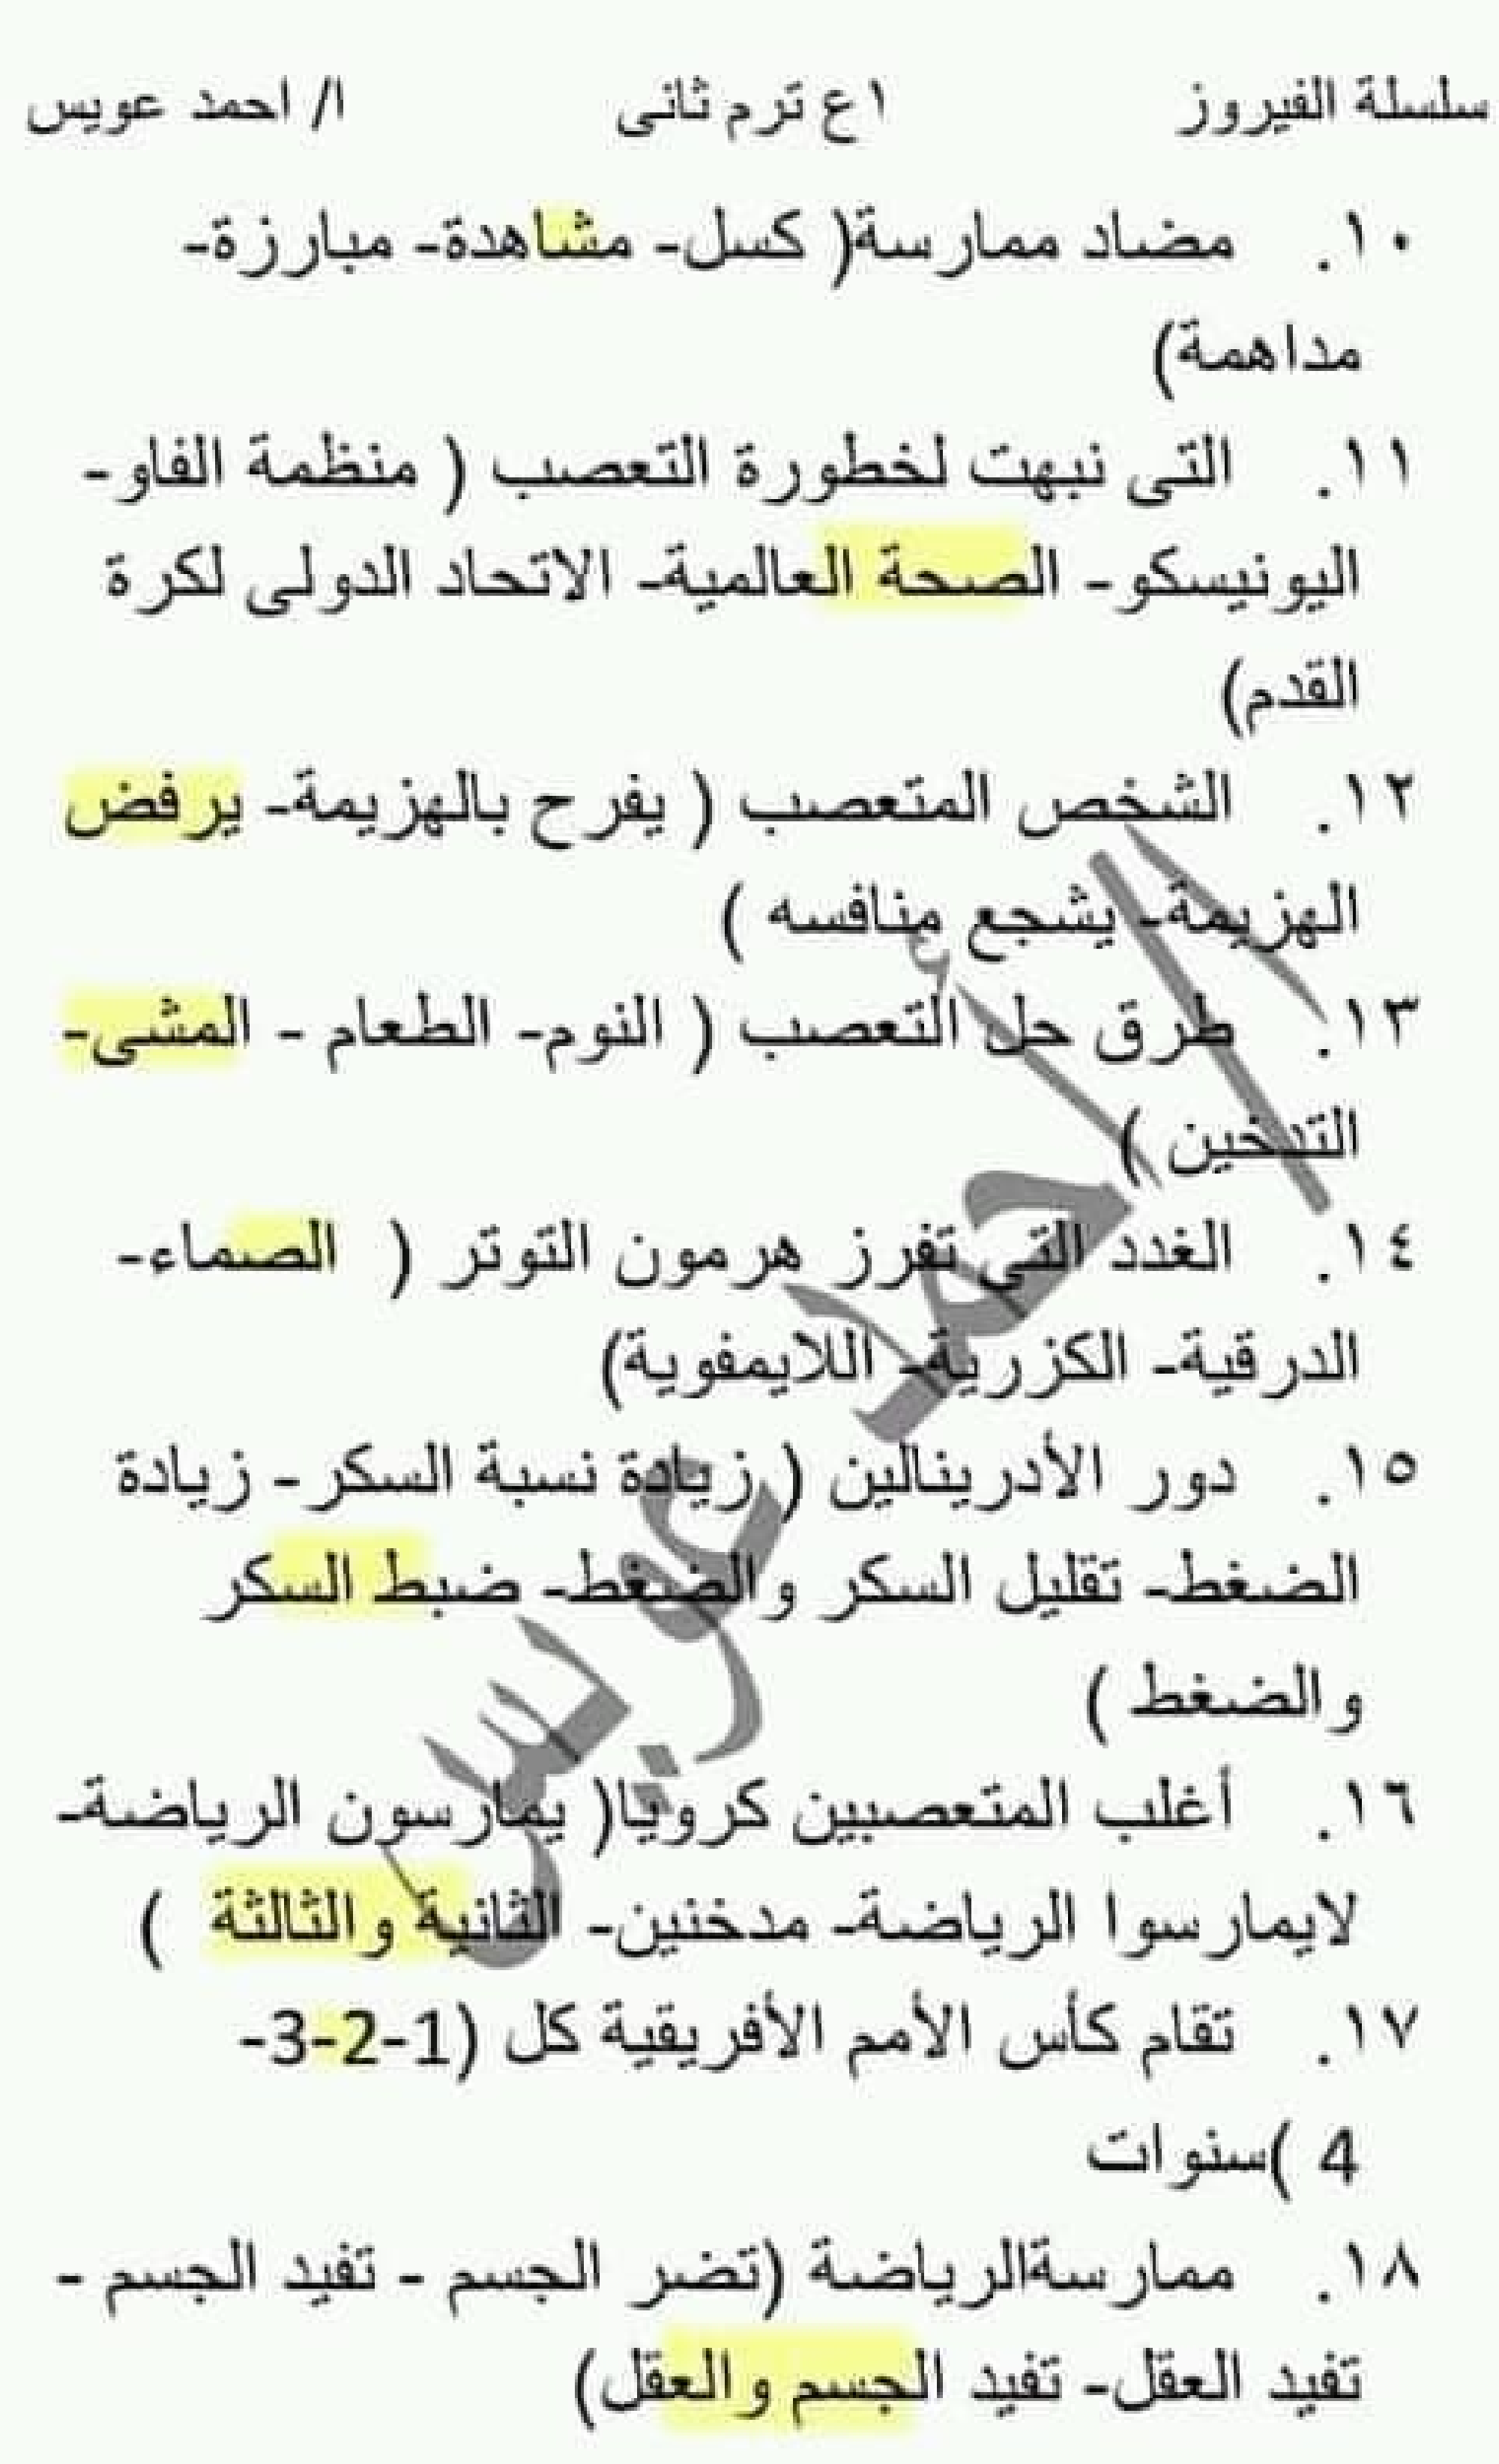 سلسلة الفيروز ١ع ترم ثانى ا/ احمد عويس
١٠. مضاد ممارسة( كسل- مشاهدة- مبارزة-
مداهمة)
١١. التى نبهت لخطورة التعصب ( منظمة الفاو-
اليونيسكو- الصحة العالمية- الاتحاد الدولى لكرة
القدم)
١٢. الشخص المتعصب ( يفرح بالهزيمة- يرفض
الهزيمة- يشجع منافسه )
١٣. طرق حل التعصب ( النوم- الطعام - المشى-
التدخين )
١٤. الغدد التى تفرز هرمون التوتر ( الصماء-
الدرقية- الكزرية- اللايمفوية)
١٥. دور الأدرينالين ( زيادة نسبة السكر- زيادة
الضغط- تقليل السكر والضغط- ضبط السكر
والضغط )
١٦. أغلب المتعصبين كرويا( يمارسون الرياضة-
لايمارسوا الرياضة- مدخنين- الثانية والثالثة )
١٧. تقام كأس الأمم الأفريقية كل (1-2-3-
4 )سنوات
١٨. ممارسةالرياضة (تضر الجسم - تفيد الجسم -
تفيد العقل- تفيد الجسم والعقل)
أ/ أحمد عويس